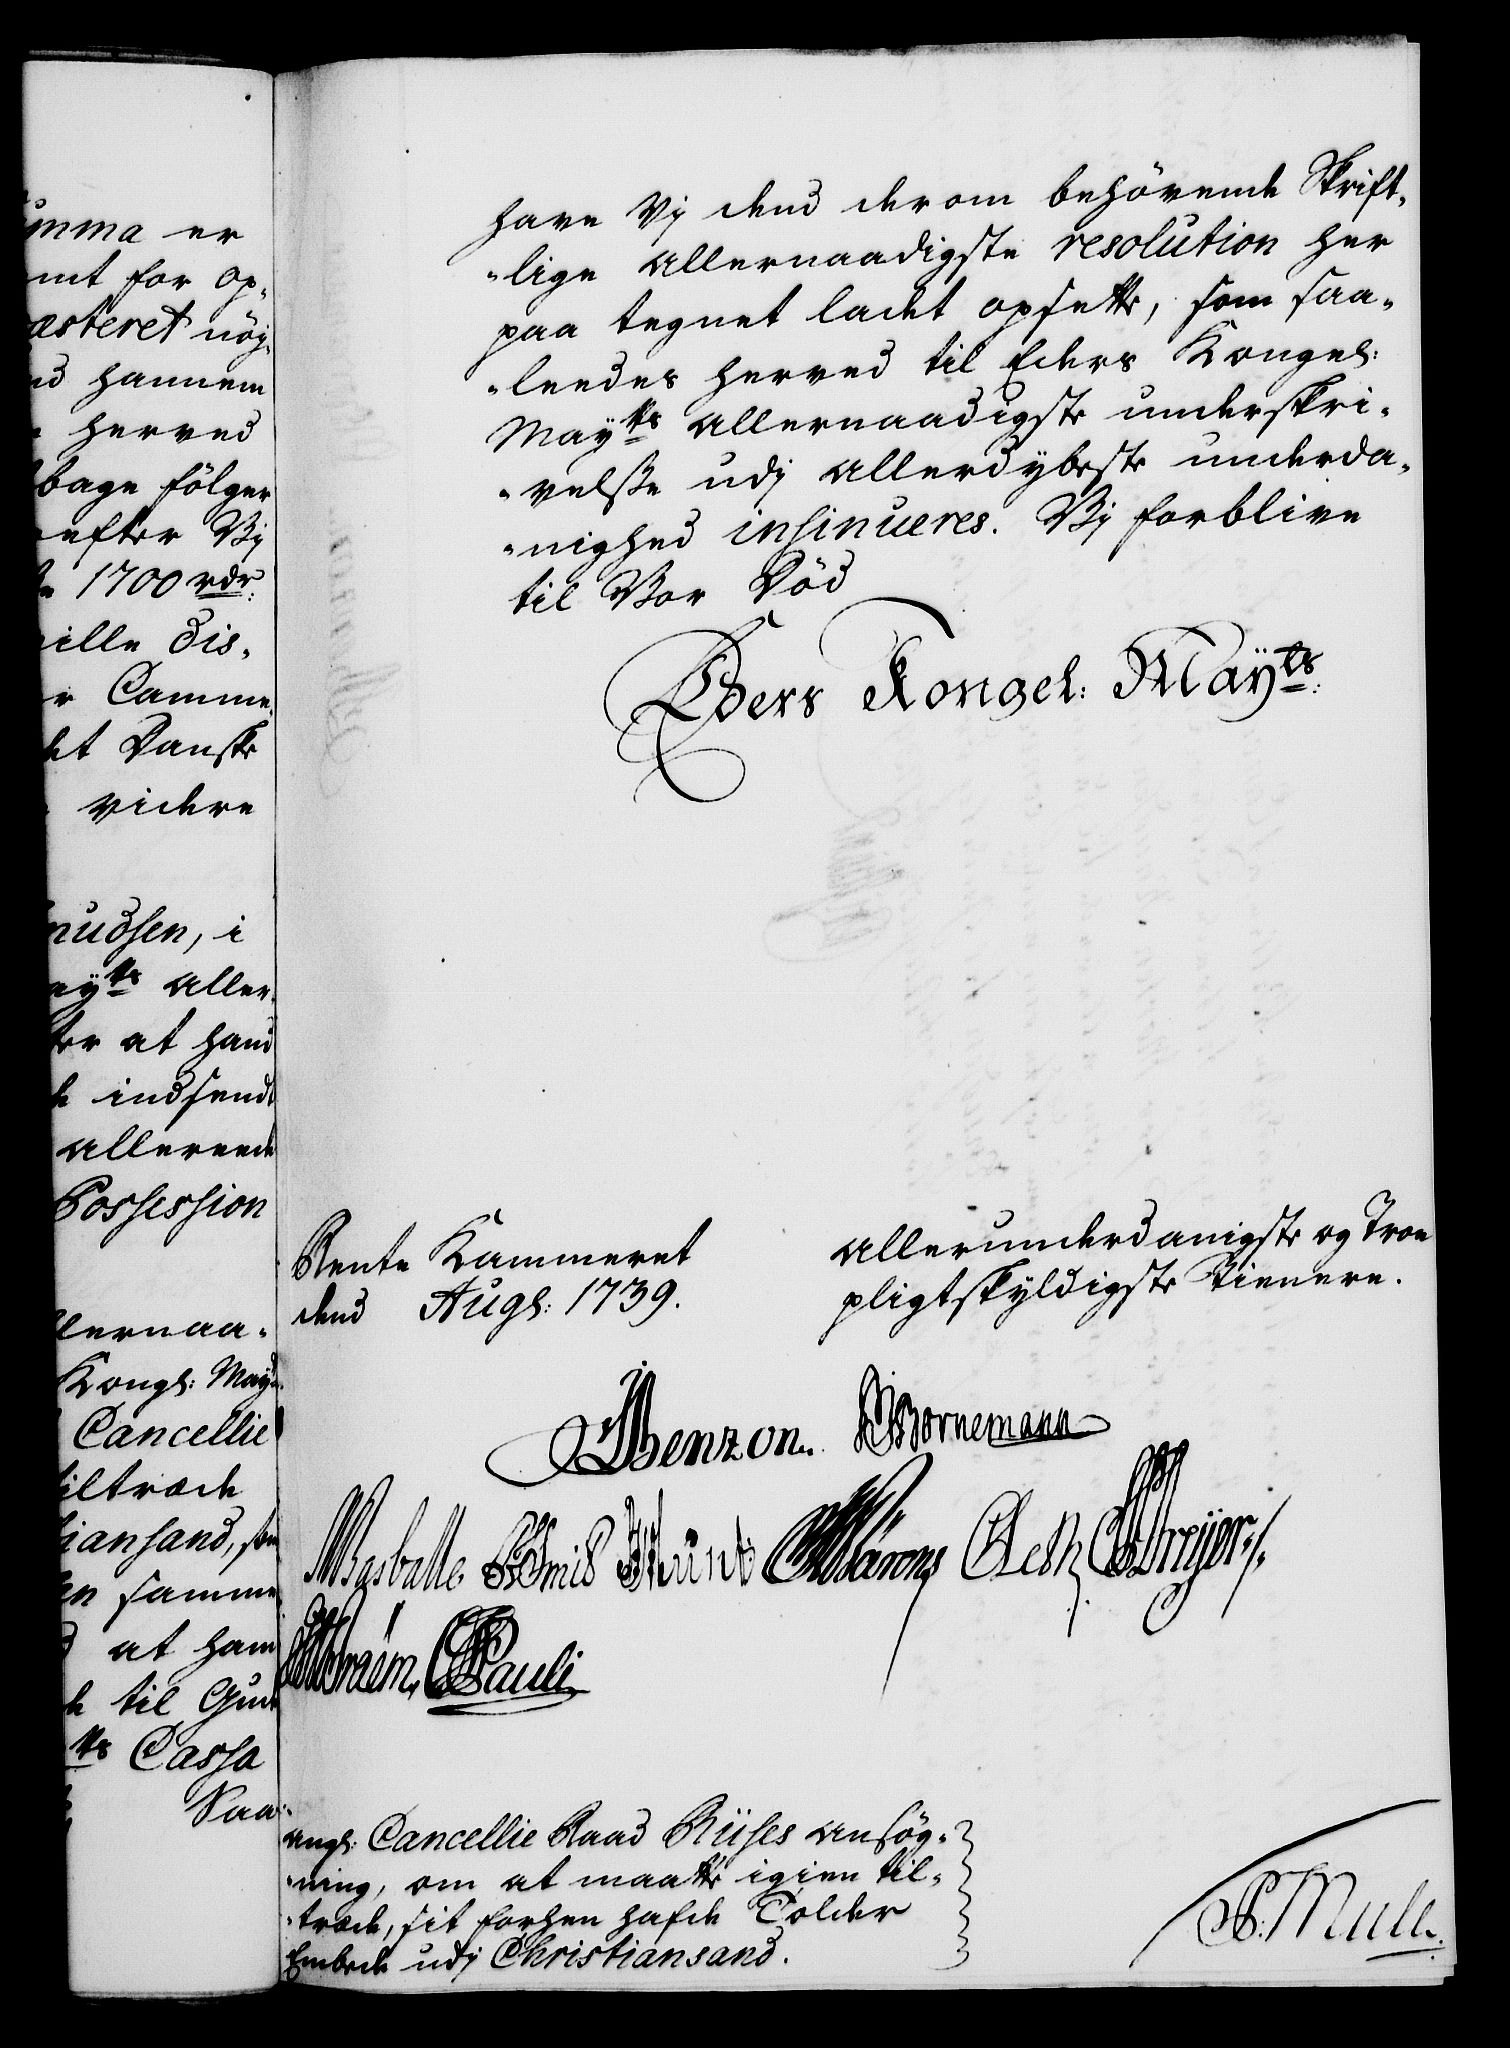 umma er
mt for op-
æsteret nöy-
nd hannem
herved
bage fölger
efter Vij
1700 rdr:
ville dis-
r Camme-
et Danske
videre
nudsen, i
ayts aller-
ter at hand
indsendt
allereede
Possession
llernaa-
Kongl: May
Cancellie
iltræde
iansand, som
en samme
at ham
til Gud
ts Cassa
Saa-
have Vj dend derom behövende Skrift-
-lige allernaadigste resolution her
paa tegnet ladet opsette, som saa-
-leedes herved til Eders Kongel:
Mayts allernaadigste underskri-
-velße udj allerdybeste underda-
-nighed insinueres. Vj forblive
til Vor Död
Eders Kongel: Mayts:
Rente Kammeret
dend Augs: 1739.
allerunderdanigste og Troe
pligtskyldigste Tienere.
JBenzon. Bornemann
Basballe Smid Munt Dreyer
Pauli
angl: Cancellie Raad Riises ansög-
-ning, om at maatte igien til-
-træde, sit forhen hafde Tolder
Embede udj Christiansand.
P: Mule.